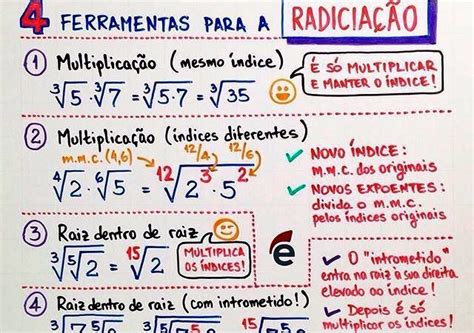 4 FERRAMENTAS PARA A RADICIAÇÃO
1 Multiplicação (mesmo índice)
∛5 · ∛7 = ∛5·7 = ∛35
É SÓ MULTIPLICAR
E MANTER O ÍNDICE!
2 Multiplicação (índices diferentes)
m.m.c. (4,6) → 12/4 12/6
⁴√2 · ⁶√5 = ¹²√2³ · 5²
✓ NOVO ÍNDICE:
m.m.c. dos originais
✓ NOVOS EXPOENTES:
divida o m.m.c.
pelos índices originais
3 Raiz dentro de raiz
∛⁵√2 = ¹⁵√2
MULTIPLICA
OS ÍNDICES!
é
✓ O "intrometido"
entra na raiz à sua direita
elevado ao índice!
✓ Depois é só
multiplicar os índices!
4 Raiz dentro de raiz (com intrometido!)